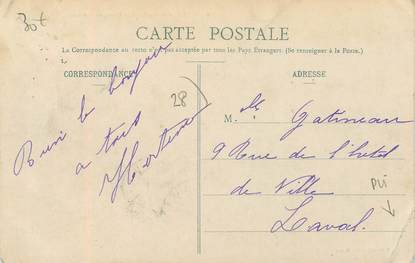 30t
CARTE POSTALE
La Correspondance au recto n'est pas acceptée par tous les Pays Étrangers. (Se renseigner à la Poste.)
CORRESPONDANCE
le bonjour
a tous
Hortense
28
ADRESSE
M lle Gatineau
9 Rue de l'hotel
de Ville
Laval
PLI